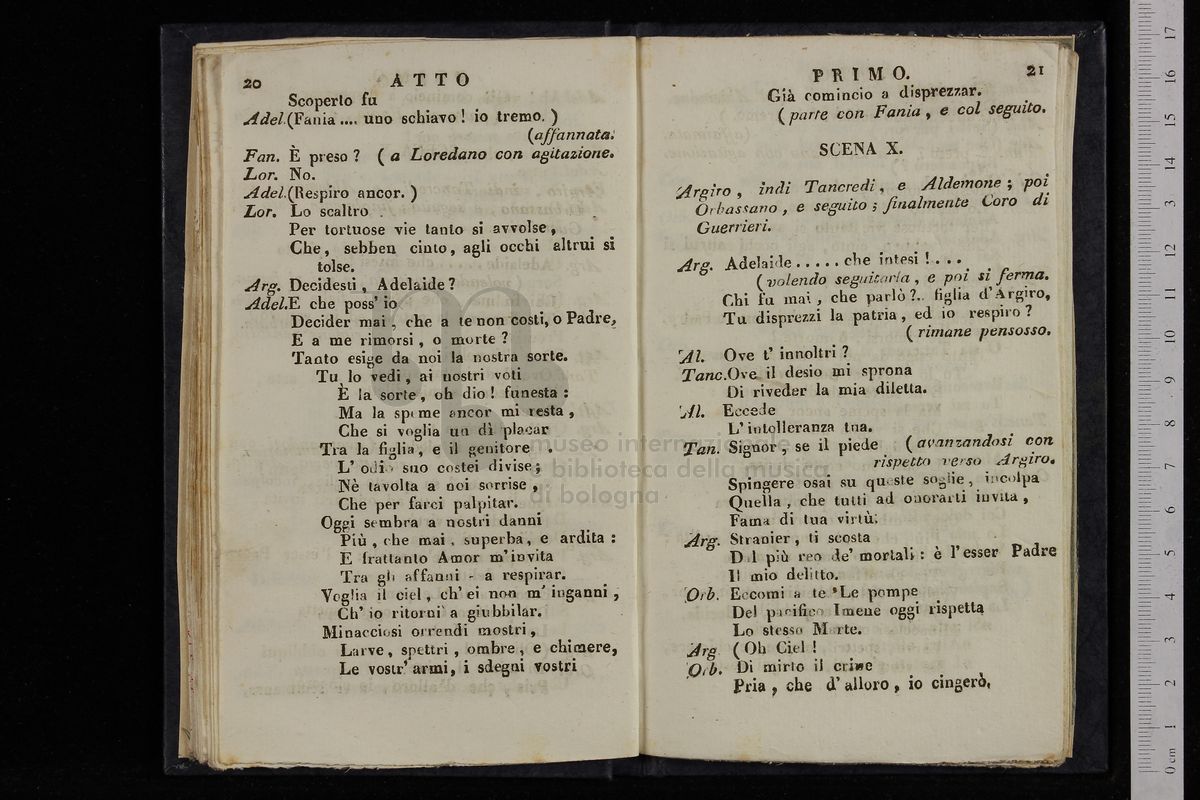 20 ATTO
Scoperto fu
Adel.(Fania .... uno schiavo! io tremo. )
(affannata.
Fan. È preso? (a Loredano con agitazione.
Lor. No.
Adel.(Respiro ancor. )
Lor. Lo scaltro
Per tortuose vie tanto si avvolse,
Che, sebben cinto, agli occhi altrui si
tolse.
Arg. Decidesti, Adelaide?
Adel.E che poss' io
Decider mai, che a te non costi, o Padre,
E a me rimorsi, o morte?
Tanto esige da noi la nostra sorte.
Tu lo vedi, ai nostri voti
È la sorte, oh dio! funesta:
Ma la speme ancor mi resta,
Che si voglia un dì placar
Tra la figlia, e il genitore
L' odio suo costei divise;
Nè tavolta a noi sorrise,
Che per farci palpitar.
Oggi sembra a nostri danni
Più, che mai, superba, e ardita:
E frattanto Amor m'invita
Tra gli affanni - a respirar.
Voglia il ciel, ch' ei non m' inganni,
Ch' io ritorni a giubbilar.
Minacciosi orrendi mostri,
Larve, spettri, ombre, e chimere,
Le vostr' armi, i sdegni vostri
PRIMO. 21
Già comincio a disprezzar.
(parte con Fania, e col seguito.
SCENA X.
Argiro, indi Tancredi, e Aldemone; poi
Orbassano, e seguito; finalmente Coro di
Guerrieri.
Arg. Adelaide ..... che intesi! ...
(volendo seguitarla, e poi si ferma.
Chi fu mai, che parlò?.. figlia d'Argiro,
Tu disprezzi la patria, ed io respiro?
(rimane pensosso.
Al. Ove t' innoltri?
Tanc.Ove il desio mi sprona
Di riveder la mia diletta.
Al. Eccede
L' intolleranza tua.
Tan. Signor, se il piede (avanzandosi con
rispetto verso Argiro.
Spingere osai su queste soglie, incolpa
Quella, che tutti ad onorarti invita,
Fama di tua virtù.
Arg. Stranier, ti scosta
Dal più reo de' mortali: è l'esser Padre
Il mio delitto.
Orb. Eccomi a te Le pompe
Del pacifico Imene oggi rispetta
Lo stesso Marte.
Arg (Oh Ciel!
Orb. Di mirto il crine
Pria, che d' alloro, io cingerò,
museo internazionale
e biblioteca della musica
di bologna
0 cm 1 2 3 4 5 6 7 8 9 10 11 12 13 14 15 16 17